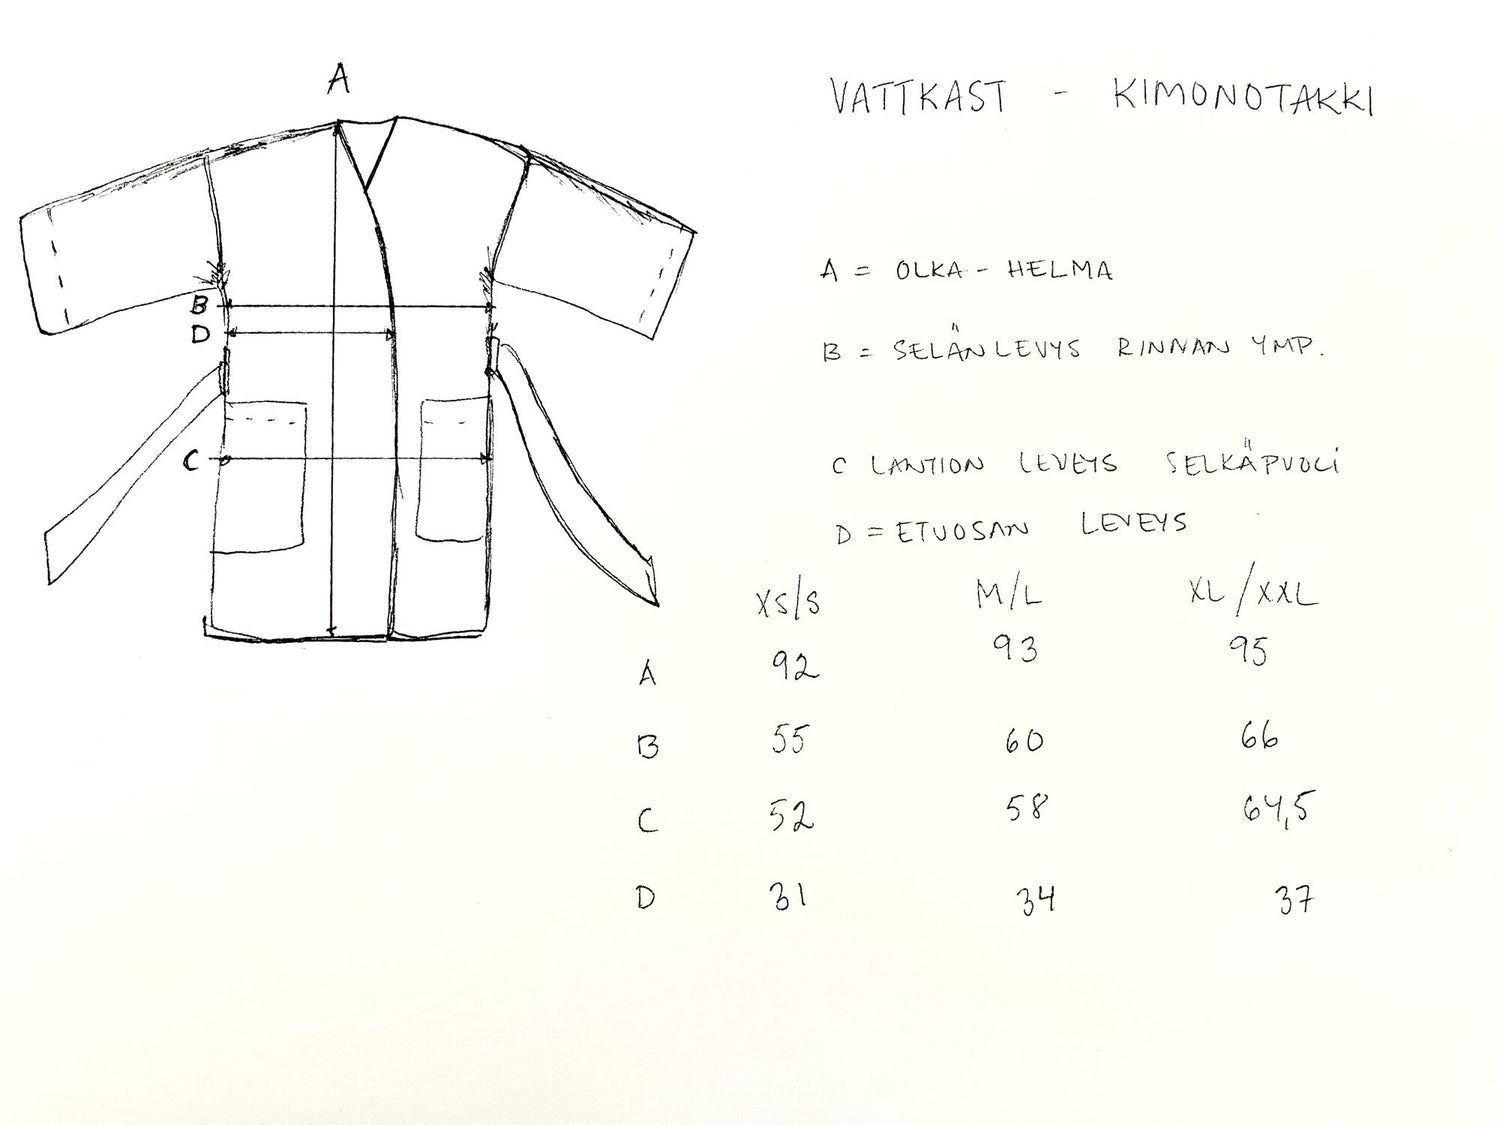 A
VATTKAST - KIMONOTAKKI
A = OLKA - HELMA
B
D
B = SELÄNLEVYS RINNAN YMP.
C
C LANTION LEVEYS SELKÄPUOLI
D = ETUOSAN LEVEYS
XS/S M/L XL/XXL
A 92 93 95
B 55 60 66
C 52 58 64,5
D 31 34 37